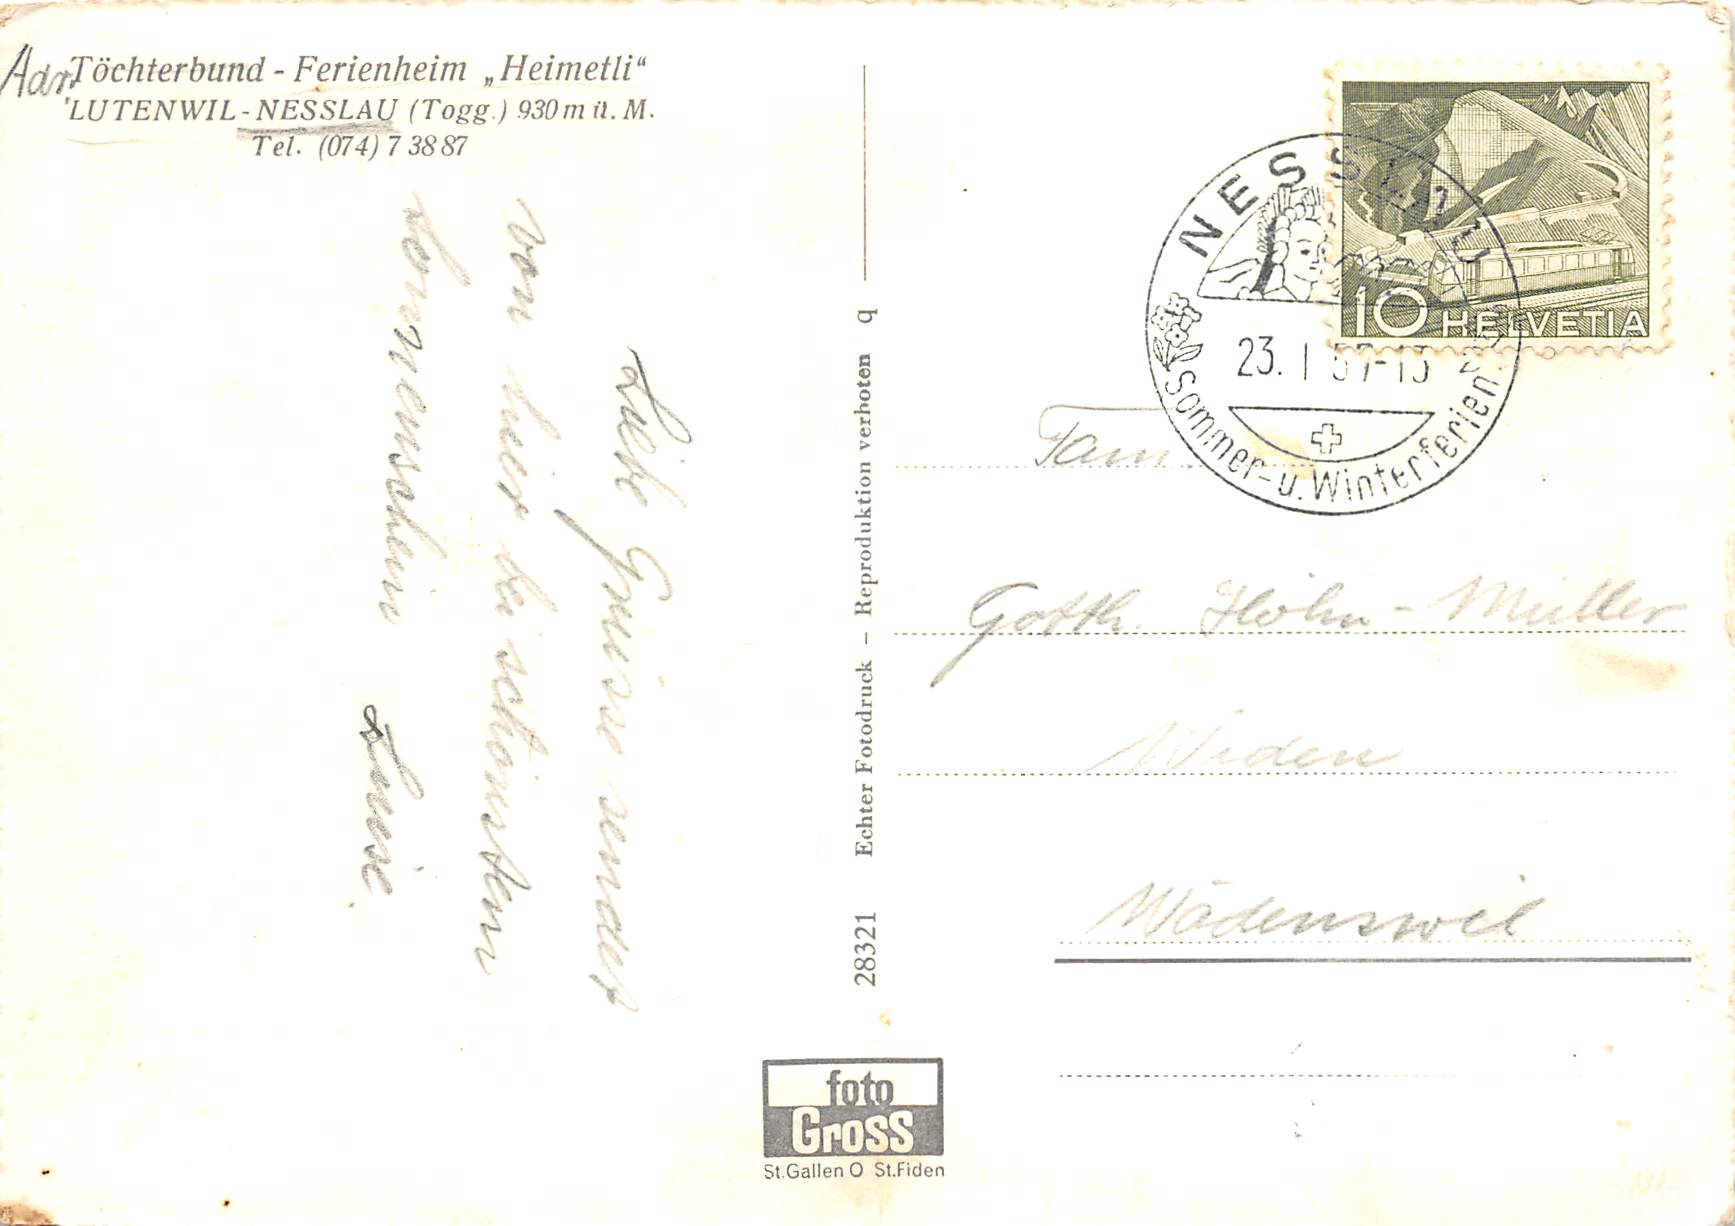 Adr. Töchterbund - Ferienheim „Heimetli“
LUTENWIL - NESSLAU (Togg.) 930 m ü. M.
Tel. (074) 7 38 87
Liebe Grüsse sendet
von hier bei schönstem
Sonnenschein
Luise
28321 Echter Fotodruck – Reproduktion verboten q
foto
Gross
St.Gallen O St.Fiden
NESSLAU
23. I 57-13
Sommer- u. Winterferien
10 HELVETIA
Fam.
Gotth. Höhn - Müller
Weiden
Wädenswil